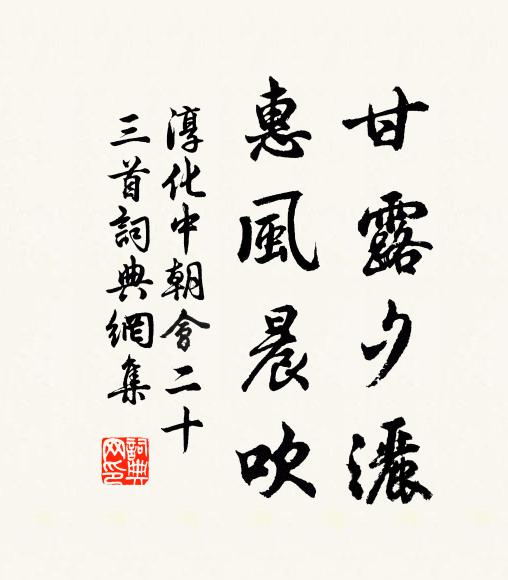 甘露夕灑
惠風晨吹
淳化中朝會二十
三首詞典網集
詞典网印